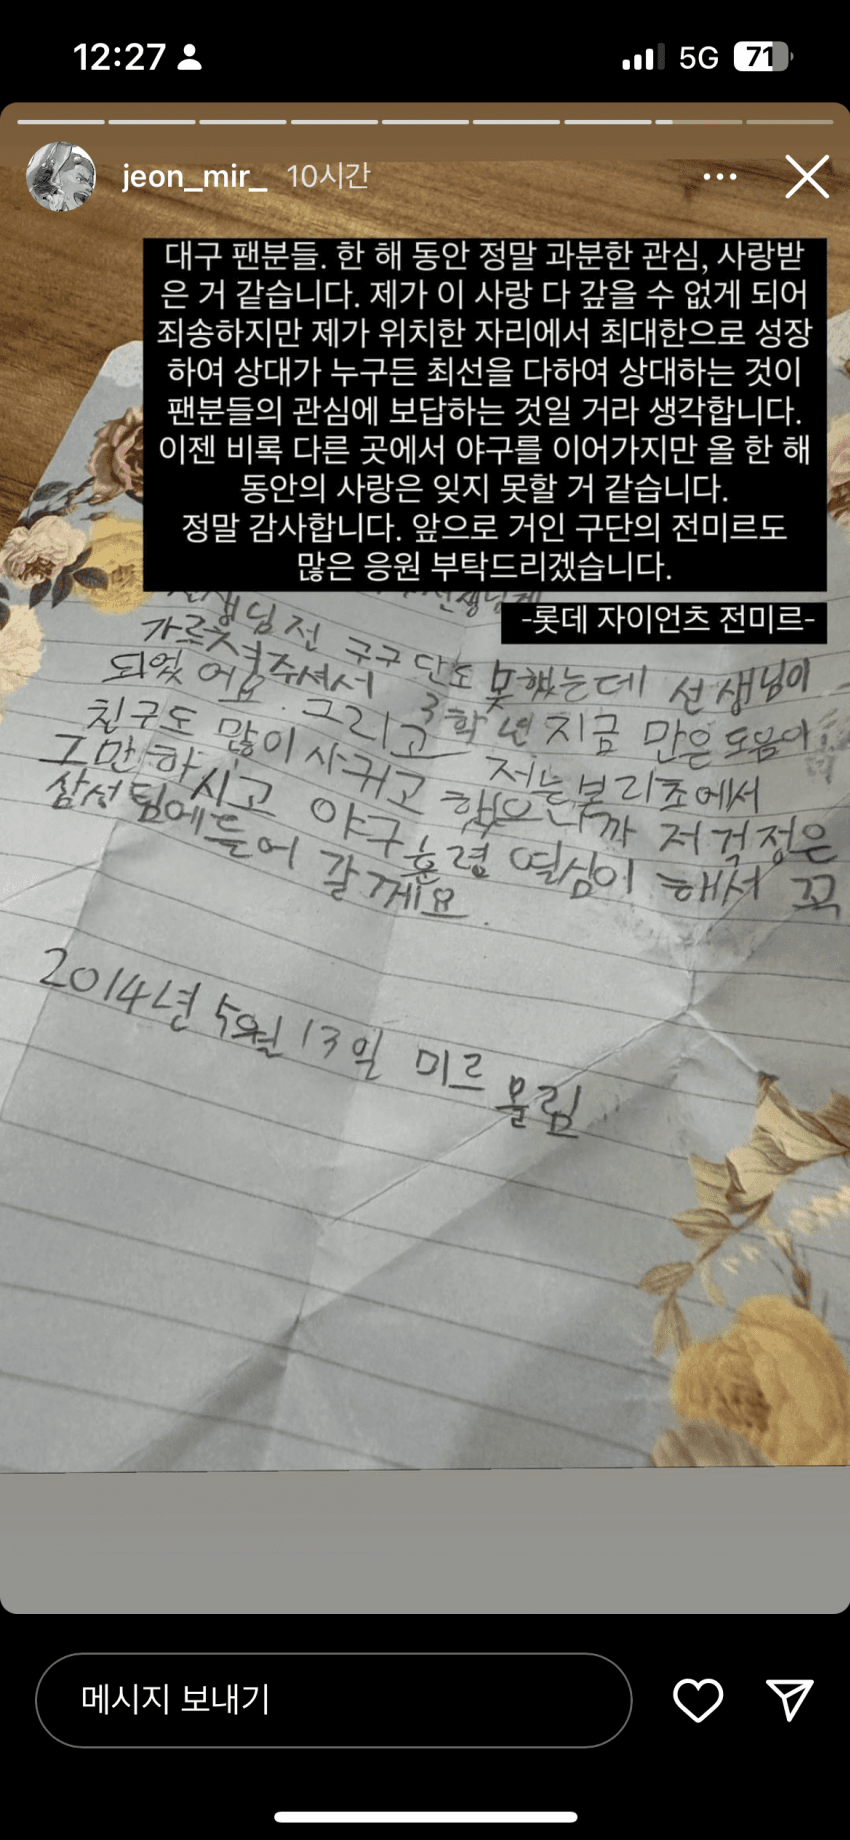 12:27
5G
71
jeon_mir_ 10시간
대구 팬분들. 한 해 동안 정말 과분한 관심, 사랑받
은 거 같습니다. 제가 이 사랑 다 갚을 수 없게 되어
죄송하지만 제가 위치한 자리에서 최대한으로 성장
하여 상대가 누구든 최선을 다하여 상대하는 것이
팬분들의 관심에 보답하는 것일 거라 생각합니다.
이젠 비록 다른 곳에서 야구를 이어가지만 올 한 해
동안의 사랑은 잊지 못할 거 같습니다.
정말 감사합니다. 앞으로 거인 구단의 전미르도
많은 응원 부탁드리겠습니다.
-롯데 자이언츠 전미르-
선생님 전 구구단도 못했는데 선생님이
가르쳐주셔서 3학년 지금 만은 도움이
되었어요. 그리고 저는 본리초에서
친구도 많이 사귀고 했으니까 저 걱정은
그만하시고 야구 훈령 열심이 해서 꼭
삼성팀에 들어 갈께요.
2014년 5월 13일 미르 올림
메시지 보내기